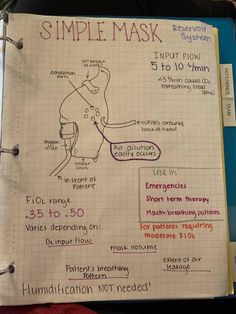 SIMPLE MASK
Reservoir
System
INPUT FLOW
5 to 10 L/min
<5 L/min causes CO2
rebreathing (dead
space)
on bridge
exhalation ports
wraps around
back of head
Air dilution
easily occurs
oxygen inlet
under
in front of
Patient
USE IN:
Emergencies
Short term therapy
Mouth-breathing patients
FiO2 range
.35 to .50
Varies depending on:
For patients requiring
moderate FiO2
O2 input flow
mask volume
Patient's breathing
Pattern
extent of air
leakage
Humidification NOT needed!